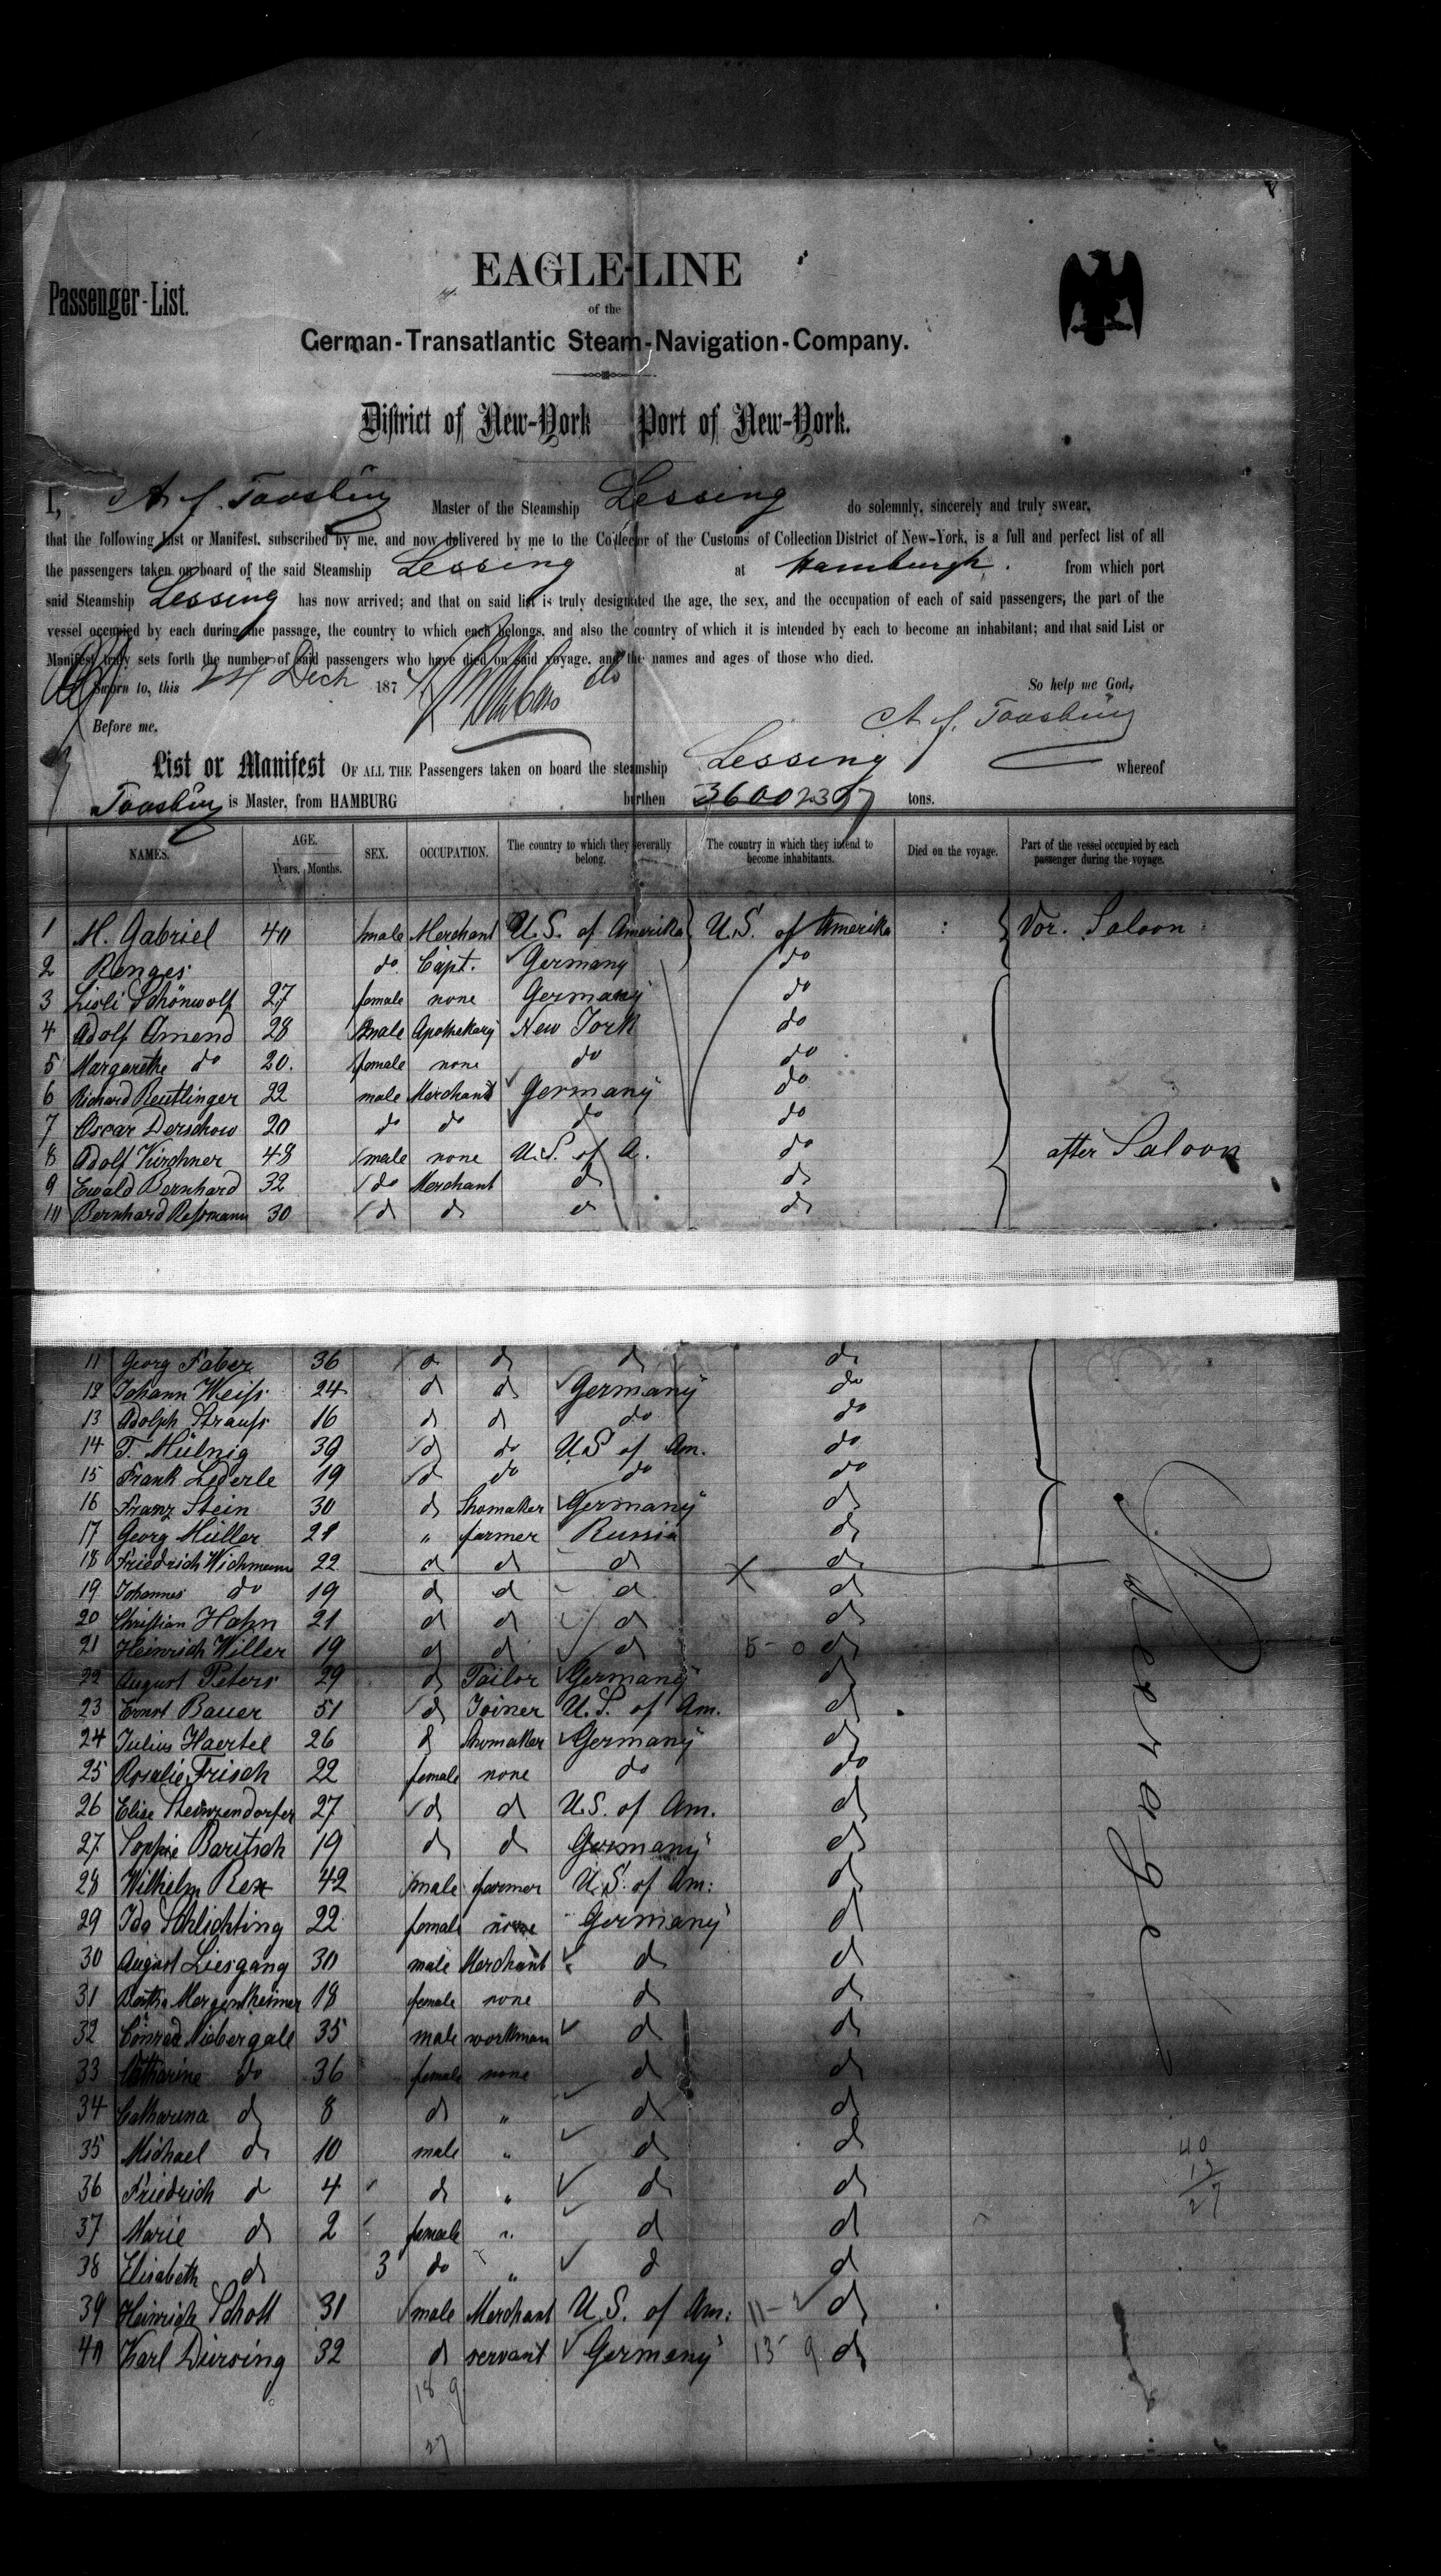 Passenger-List.
EAGLE-LINE
of the
German-Transatlantic Steam-Navigation-Company.
District of New-York Port of New-York.
I, A. f. Toosbuy Master of the Steamship Lessing do solemnly, sincerely and truly swear,
that the following List or Manifest, subscribed by me, and now delivered by me to the Collector of the Customs of Collection District of New-York, is a full and perfect list of all
the passengers taken on board of the said Steamship Lessing at Hamburgh. from which port
said Steamship Lessing has now arrived; and that on said list is truly designated the age, the sex, and the occupation of each of said passengers, the part of the
vessel occupied by each during the passage, the country to which each belongs, and also the country of which it is intended by each to become an inhabitant; and that said List or
Manifest truly sets forth the number of said passengers who have died on said voyage, and the names and ages of those who died.
Sworn to, this 24 Dech 187 So help me God,
Before me, A. f. Toosbuy
List or Manifest OF ALL THE Passengers taken on board the steamship Lessing whereof
Toosbuy is Master, from HAMBURG burthen 3600 tons.
NAMES. AGE. Years. Months. SEX. OCCUPATION. The country to which they severally belong. The country in which they intend to become inhabitants. Died on the voyage. Part of the vessel occupied by each passenger during the voyage.
1 M. Gabriel 40 male Merchant U.S. of Amerika U.S. of Amerika Vor. Saloon
2 Renges do Capt. Germany do
3 Lisli Schönwolf 27 female none Germany do
4 Adolf Amend 28 male Apothekary New York do
5 Margarethe do 20. female none do do
6 Richard Reutlinger 22 male Merchant Germany do
7 Oscar Derschow 20 do do do do
8 Adolf Kirchner 48 male none U.S. of A. do after Saloon
9 Ewald Bernhard 32 do Merchant do do
10 Bernhard Reßmann 30 do do do do
11 Georg Faber 36 do do do do
12 Johann Weiß 24 do do Germany do
13 Adolph Strauß 16 do do do do
14 T. Mülnig 39 do do U.S of Am. do
15 Frank Lederle 19 do do do do
16 Franz Stein 30 do Shomaker Germany do
17 Georg Müller 21 " farmer Russia do
18 Friedrich Wichmann 22 do do do do
19 Johannes do 19 do do do do
20 Christian Hahn 21 do do do do
21 Heinrich Willer 19 do do do do
22 August Peters 29 do Tailor Germany do
23 Ernst Bauer 51 do Joiner U.S. of Am. do
24 Julius Haertel 26 do Shomaker Germany do
25 Rosalie Frisch 22 female none do do
26 Elise 27 do do U.S. of Am. do
27 Sophie Baritsch 19 do do Germany do
28 Wilhelm Rex 42 male farmer U.S. of Am. do
29 Ida Schlichting 22 female none Germany do
30 August Liesgang 30 male Merchant do do
31 Bertha Mergentheimer 18 female none do do
32 Conrad Niebergall 35 male workman do do
33 Catharine do 36 female none do do
34 Catharina do 8 do " do do
35 Michael do 10 male " do do
36 Friedrich do 4 do " do do
37 Marie do 2 female " do do
38 Elisabeth do 3 do " do do
39 Heinrich Schott 31 male Merchant U.S. of Am: 11- do
40 Karl Dürsing 32 do servant Germany 13 9 do
Steerage
40
13
27
18 9
27